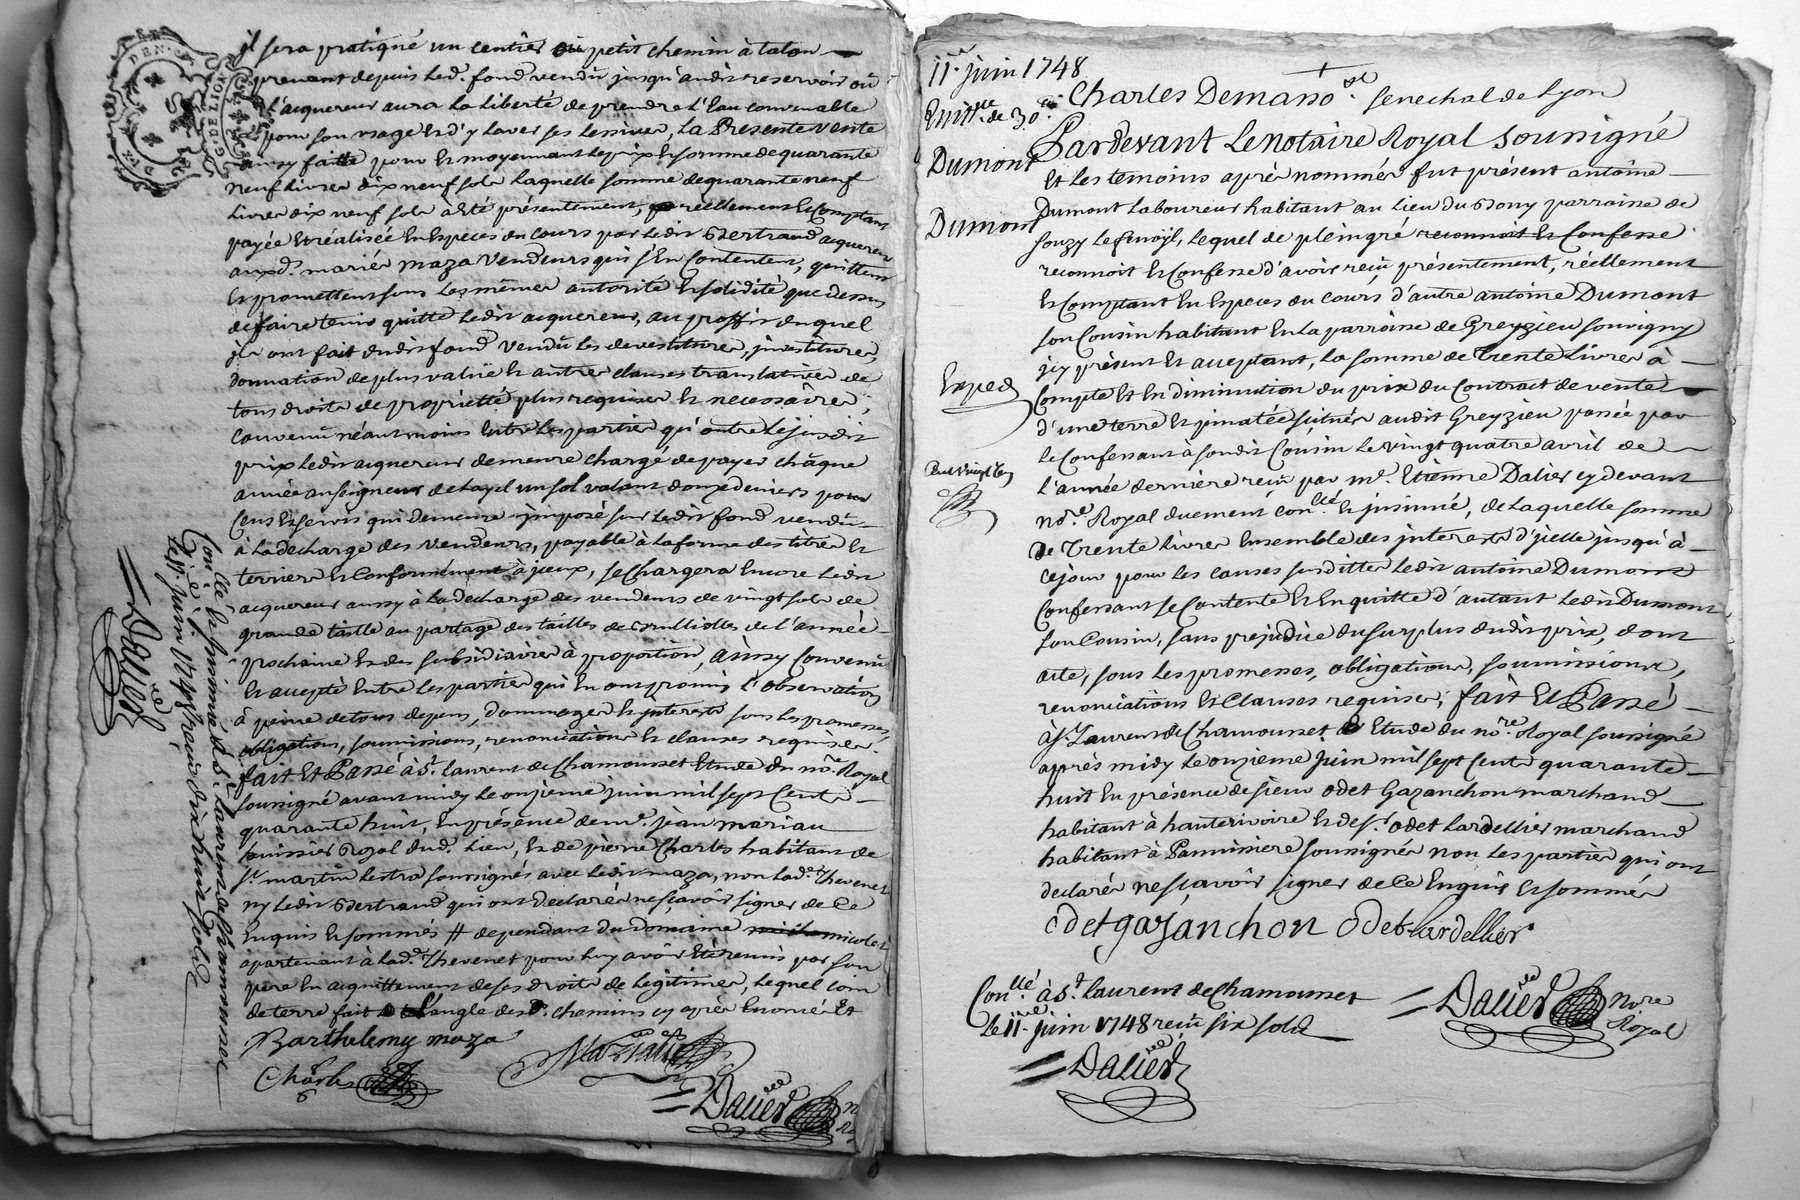 il sera pratiqué un sentier ou petit chemin à talon
prenant depuis led. fond vendu jusqu'audit reservoir où
l'aquereur aura la liberté de prendre l'Eau convenable
pour son usage et d'y laver ses lessives, La Presente vente
ainsy faitte pour et moyennant le prix et somme de quarante
neuf livres dix neuf sols laquelle somme de quarante neuf
livres dix neuf sols à Eté présentement, reellement et Comptant
payée et réalisée En Especes du cours par ledit Bertrand aquereur
auxd. mariés maza Vendeurs qui s'En Contentent, quittent
et promettent sous les mêmes autorité et solidité que dessus
de faire tenir quitte ledit aquereur, au proffit duquel
ils ont fait dudit fond vendu les devestitures, investitures,
donnation de plus value et autres clauses translatives de
tous droits de proprietté plus requises et necessaires,
convenu néantmoins Entre les parties qu'outre le susdit
prix ledit aquereur demeure chargé de payer châque
année au seigneur de Layel un sol valant douze deniers pour
Cens et servis qui demeure imposé sur ledit fond vendu
à la decharge des Vendeurs, payable à la forme des titres et
terriers et Conformément à iceux, se Chargera Encore ledit
aquereur aussy à la decharge des vendeurs de vingt sols de
grande taille au partage des tailles de Brulliolles de l'année
prochaine et des subsidiaires à proportion, ainsy Convenu
et accepté Entre les parties qui En ont promis l'observation
à peine de tous depens, dommages et interests sous les promesses,
obligations, soumissions, renonciations et clauses requises.
fait Et Passé à St. Laurent de Chamousset Etude du nore. Royal
soussigné avant midy le onzieme juin mil sept Cents
quarante huit, En présence de me. jean mariau
huissier Royal dud. Lieu, et de pierre Charles habitant de
St. martin Lestra soussignés avec ledit maza, non lad. Thevenet
ny ledit Bertrand qui ont Declarés ne sçavoir signer de Ce
Enquis et sommés # dependant du Domaine nicolet
apartenant à lad. Thevenet pour luy avoir Eté remis par son
pere En aquittement de ses droits de Legitimes, Lequel coin
de terre fait L'angle des d. chemins cy après Enoncés et
Barthelemy maza
Mariau
Charles
Dalier
Conllé et insinué à St. Laurent de Chamousset
Le 11e. juin 1748 reçu dix huit sols
Dalier
11e. juin 1748
Quitce. de 30 #
Dumont
Dumont
Exped
Charles Demasso. senechal de Lyon
Pardevant Le Notaire Royal soussigné
Et les temoins après nommés fut présent antoine
Dumont Laboureur habitant au lieu du Bony parroisse de
Souzy Lefenoyl, Lequel de plein gré reconnoit et Confesse
reconnoit et Confesse d'avoir reçu présentement, réellement
et Comptant En Especes du cours d'autre antoine Dumont
son Cousin habitant En la parroisse de Greyzieu souvigny
icy présent et acceptant, la somme de trente Livres à
Compte et En diminution du prix du Contract de vente
d'une terre et pinatée situées audit Greyzieu passée par
le Confessant à sondit Cousin le vingt quatre avril de
l'année derniere reçu par me. Etienne Dalier cy devant
Nore. Royal duement conllé. et insinué, de laquelle somme
De trente livres Ensemble des interests d'icelle jusqu'à
ce jour pour les causes susdittes ledit antoine Dumont
Confessant se Contente et En quitte d'autant ledit Dumont
son Cousin, sans prejudice du surplus dudit prix, dont
acte, sous les promesses, obligations, soumissions,
renonciations et clauses requises; fait Et Passé
à St. Laurent de Chamousset Etude du nore. Royal soussigné
après midy le onzieme juin mil sept Cents quarante
huit En présence de sieur odet Gazanchon marchand
habitant à hauterivoire et de sr. odet Lardellier marchand
habitant à Pannissiere soussignés non les parties qui ont
declarés ne sçavoir signer de Ce Enquis et sommés
Odet gazanchon Odet Lardellier
Conllé. à St. Laurent de Chamousset
Le 11e. juin 1748 reçu six sols
Dalier
Dalier Nore
Royal